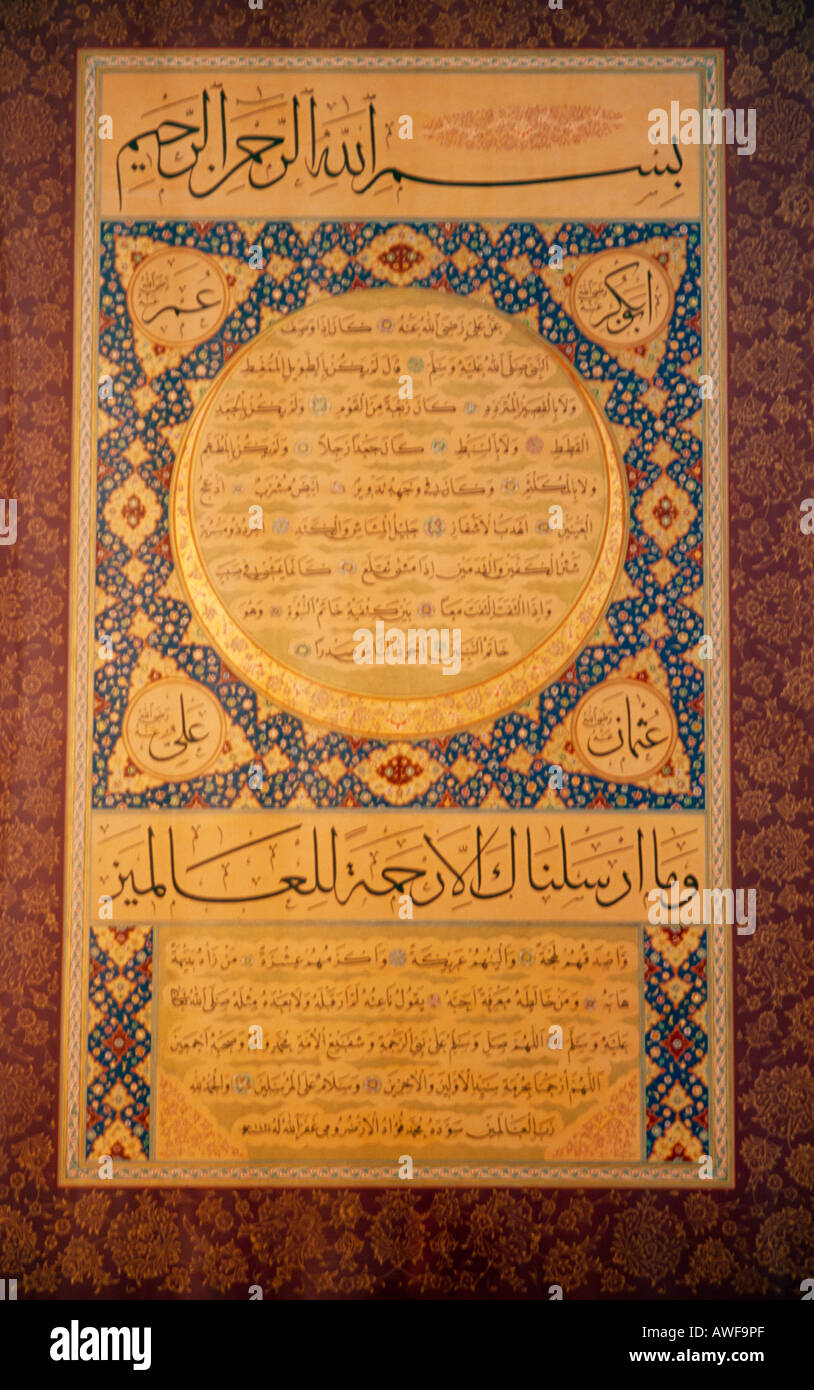 بسم الله الرحمن الرحيم
ابوبكر رضي الله عنه
عمر رضي الله عنه
عن علي رضي الله عنه كان اذا وصف
النبي صلى الله عليه وسلم قال لم يكن بالطويل الممغط
ولا بالقصير المتردد كان ربعة من القوم ولم يكن بالجعد
القطط ولا بالسبط كان جعدا رجلا ولم يكن بالمطهم
ولا بالمكلثم وكان في وجهه تدوير ابيض مشرب ادعج
العينين اهدب الاشفار جليل المشاش والكتد اجرد ذو مسربة
شثن الكفين والقدمين اذا مشى تقلع كانما يمشي في صبب
واذا التفت التفت معا بين كتفيه خاتم النبوة وهو
خاتم النبيين اجود الناس صدرا
عثمان رضي الله عنه
علي رضي الله عنه
وما ارسلناك الا رحمة للعالمين
واصدقهم لهجة والينهم عريكة واكرمهم عشرة من راه بديهة
هابه ومن خالطه معرفة احبه يقول ناعته لم ار قبله ولا بعده مثله صلى الله
عليه وسلم اللهم صل وسلم على نبي الرحمة وشفيع الامة محمد واله وصحبه اجمعين
اللهم ارحمنا بحرمة سيد الاولين والاخرين وسلام على المرسلين والحمد لله
رب العالمين سوده محمد فؤاد الارضرومي غفر الله له
alamy
a
alamy
Image ID: AWF9PF
www.alamy.com